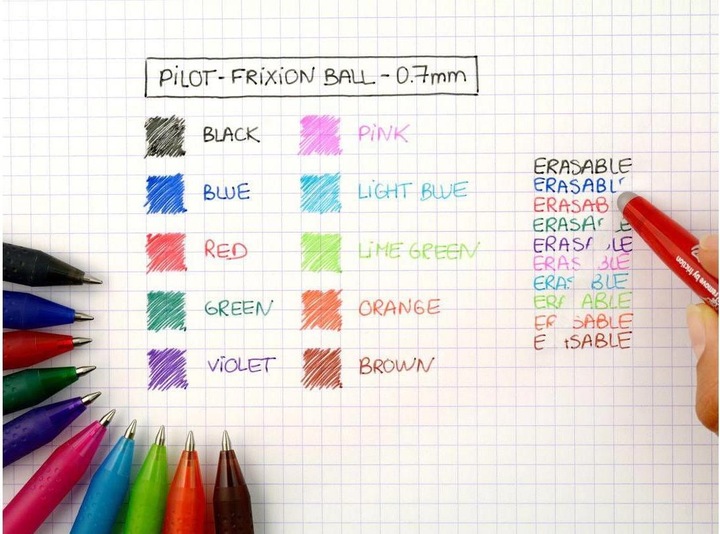 PiLOT - FRIXION BALL - 0.7mm
BLACK
BLUE
RED
GREEN
ViOLET
PiNK
LiGHT BLUE
LiME GREEN
ORANGE
BROWN
ERASABLE
ERASABL
ERASAB
ERASA E
ERAS LE
ERAS BLE
ERA BLE
ER ABLE
E SABLE
E SABLE
remove by friction